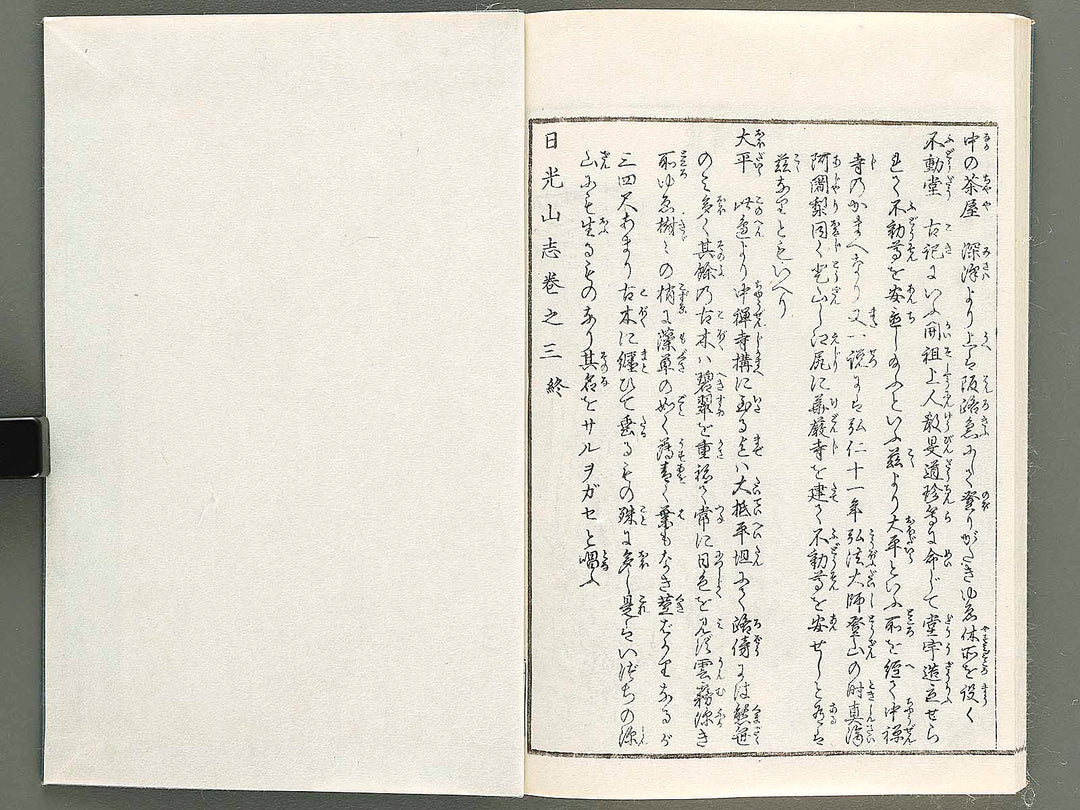 中の茶屋 深澤より上は阪路急にて登りがたきゆゑ休所を設く
不動堂 古記にいふ開祖上人教旻道珍等に命じて堂宇造立せら
れて不動尊を安置し給ふといふ茲より大平といふ所を経て中禅
寺のかまへなり又一説には弘仁十一年弘法大師登山の時真済
阿闍梨同く登山し江尻に華厳寺を建て不動尊を安せしと有は
茲なりともいへり
大平 此邊より中禪寺構に到る迄は大抵平坦にて路傍には熊笹
のミ多く其餘の古木ハ碧翠を重ねて常に日色を見ず雲霧深き
所ゆゑ樹々の梢に藻草の如く薄青く葉もなき蔓ばかりなるが
三四尺あまり古木に纒ひて垂るもの殊に多し是はいづちの深
山にも生るものなり其名をサルヲガセと唱ふ
日光山志巻之三 終